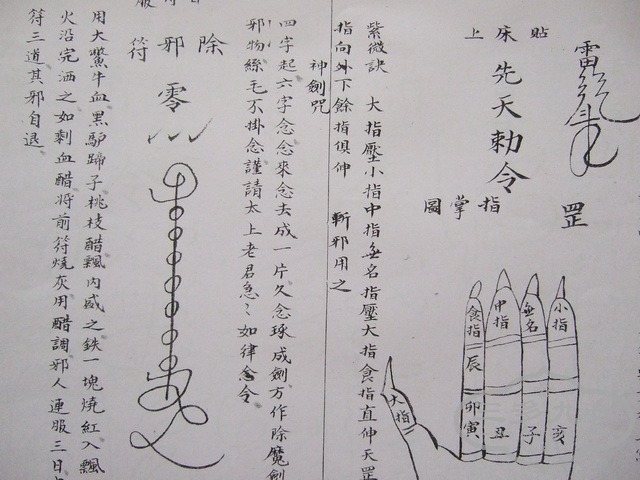 貼床上
先天勅令
罡
指掌圖
小指
無名
中指
食指
大指
辰
卯
寅
丑
子
亥
紫微訣 大指壓小指中指無名指壓大指食指直伸天罡
指向外下餘指俱伸 斬邪用之
神劍咒
四字起六字念念來念去成一片久念琢成劍万作除魔劍
邪物絲毛不掛念謹請太上老君急〻如律令
除邪符
零
用大鱉牛血黑驢蹄子桃枝醋瓢內咸之鉄一塊燒紅入瓢
火沿完洒之如剩血醋將前符燒灰用醋調邪人連服三日
符三道其邪自退